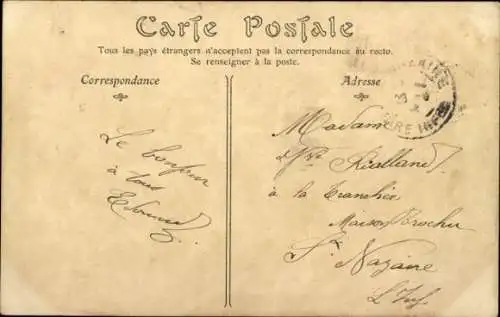 Carte Postale
Tous les pays étrangers n'acceptent pas la correspondance au recto.
Se renseigner à la poste.
Correspondance
Le bonjour
à tous
Adresse
Madame
Vve Rialland
à la Tranchée
Maison Brochu
St Nazaire
L. Inf